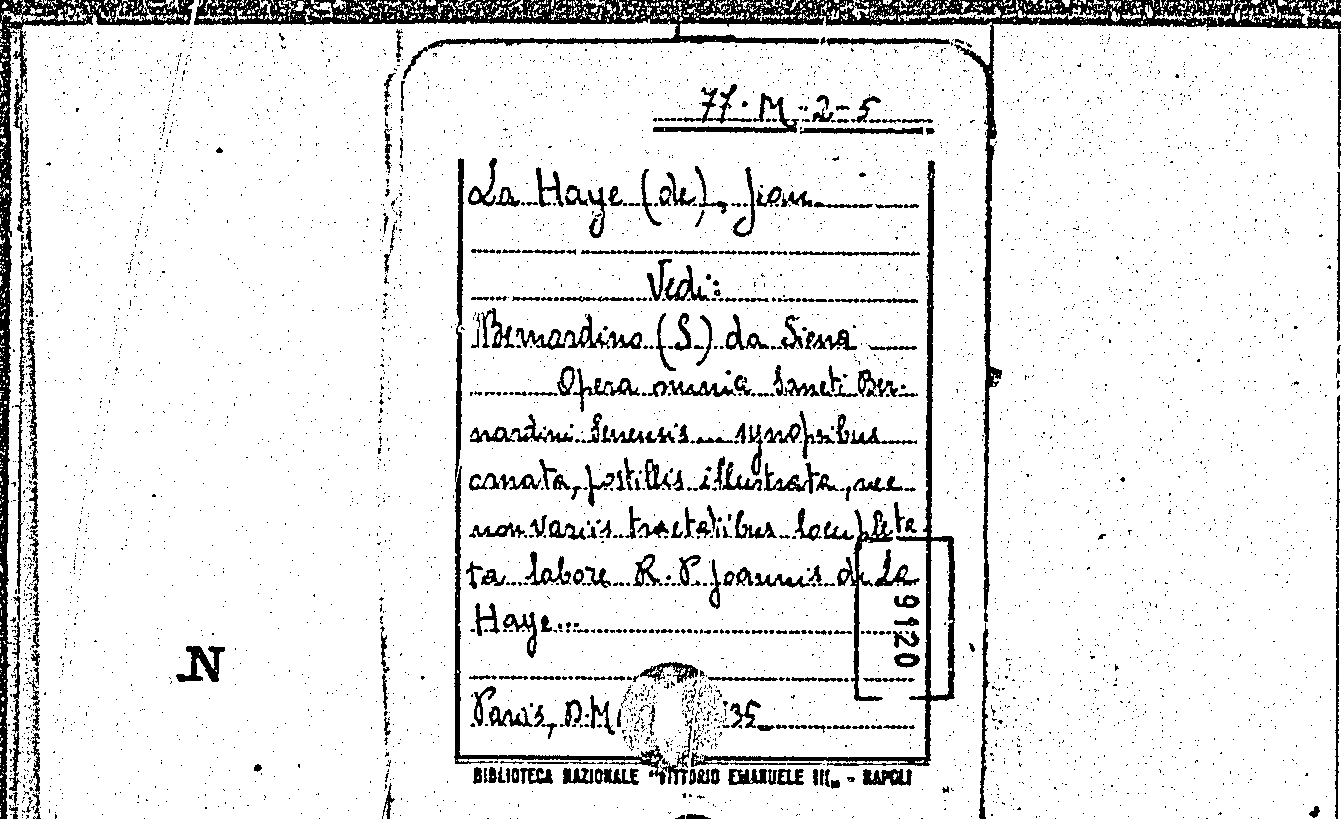 77. M - 2 - 5
La Haye (de), Jean
Vedi:
Bernardino (S) da Siena
Opera omnia Sancti Ber-
nardini Senensis... synopsibus
ornata, postillis illustrata, nec
non variis tractatibus locupleta
ta labore R. P. Joannis de La
Haye...
9120
N
Parisis, D. M. 35
BIBLIOTECA NAZIONALE "VITTORIO EMANUELE III„ - NAPOLI